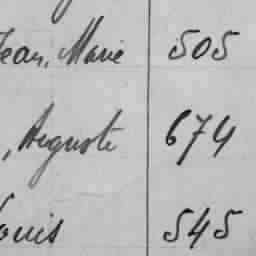 Jean, Marie 505
, Auguste 674
Louis 545